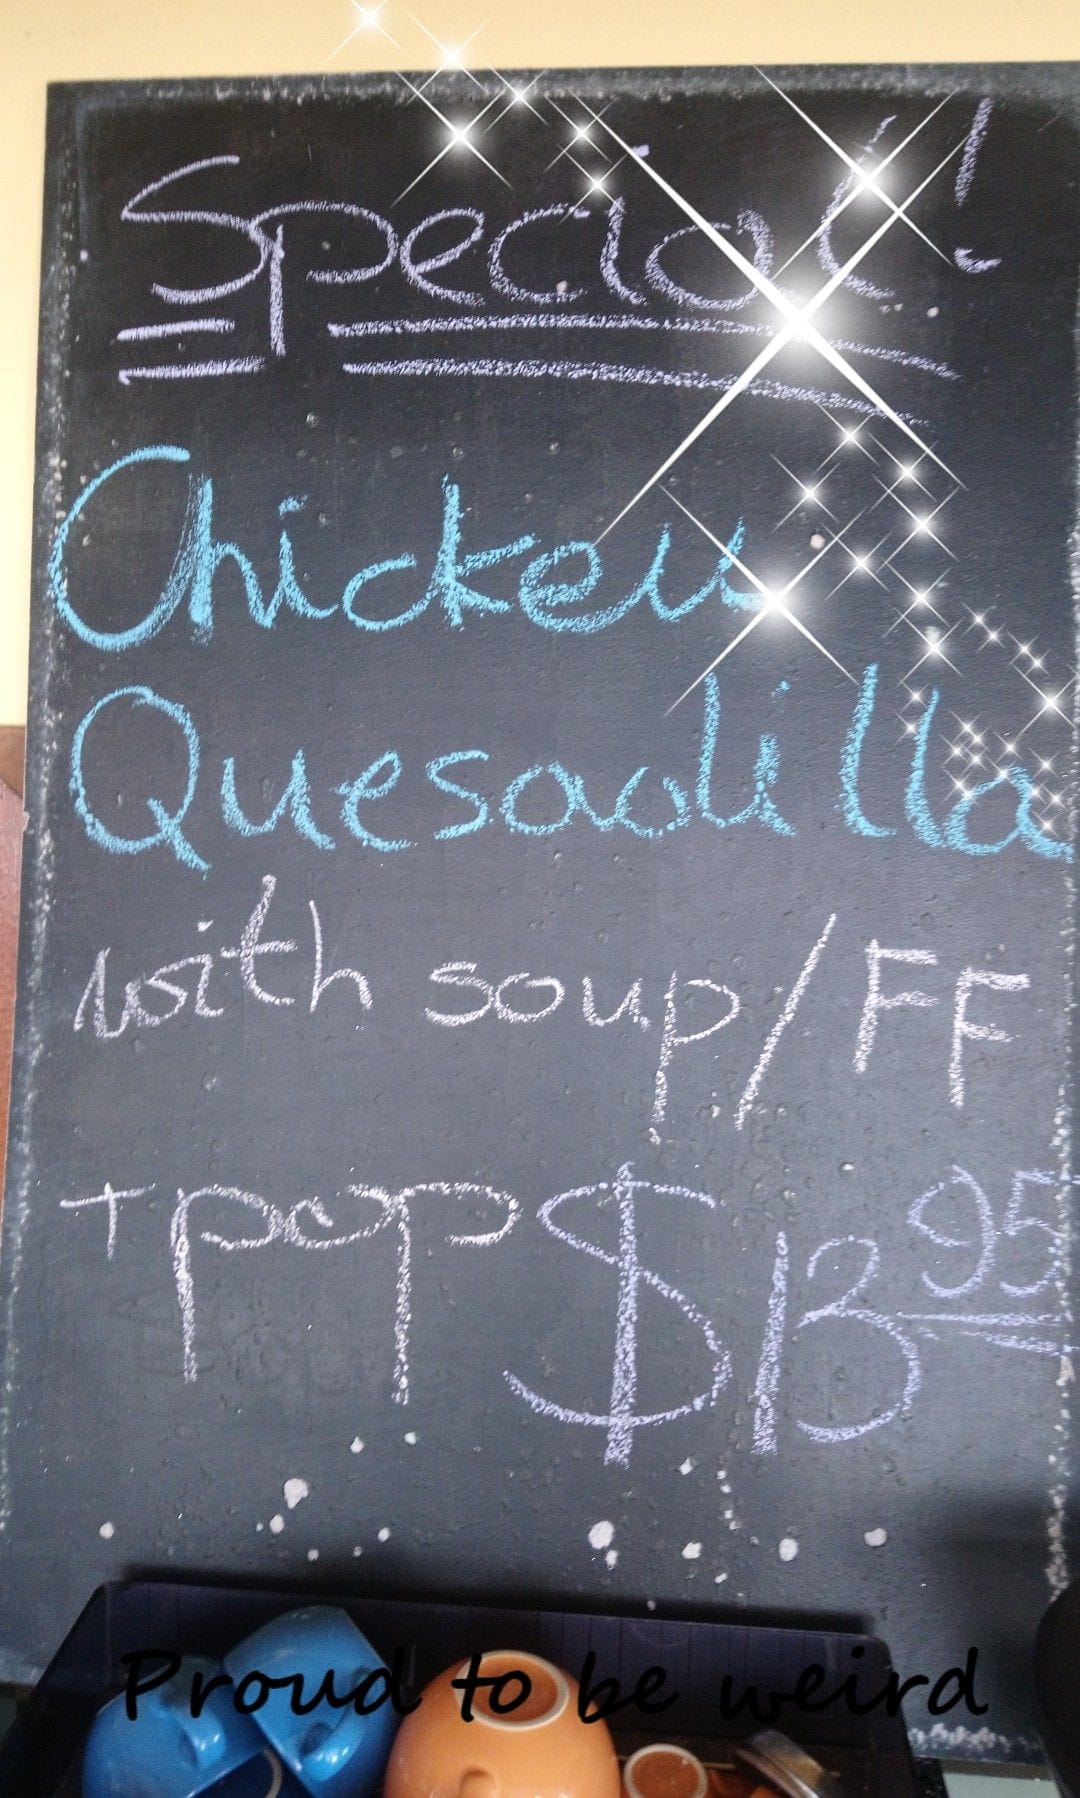 Special!
Chicken
Quesadilla
with soup/FF
+ pop $13.95
Proud to be weird